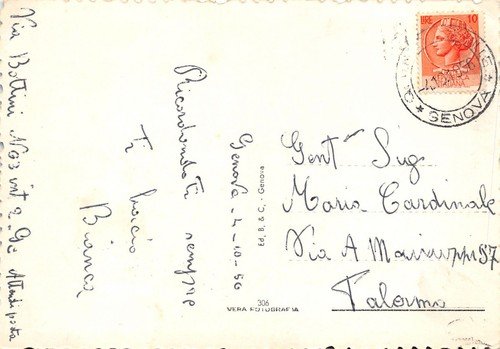 Via Bottini No 3 int 2 - Ge Attendi posta
Ricordandoti sempre
Ti bacio
Bianca
Genova - 4 - 10 - 56
Ed. B. & C. - Genova
306
VERA FOTOGRAFIA
LIRE 10
GENOVA
Gent Sig
Maria Cardinale
Via A 57
Palermo